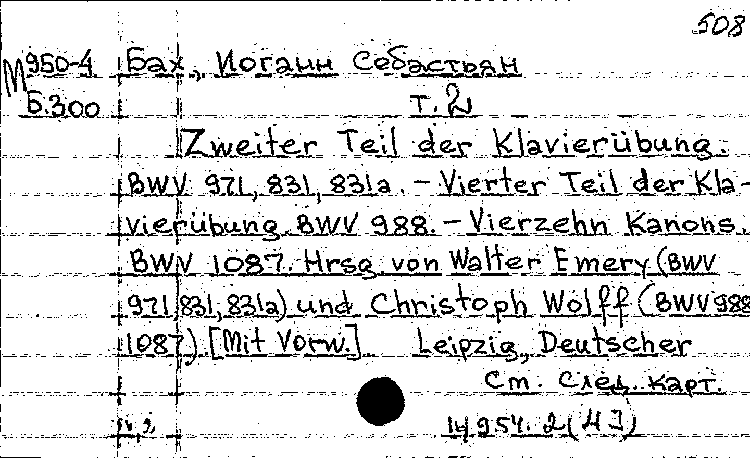 508
М950-4 Бах, Иоганн Себастьян
Б.300 т. 2
Zweiter Teil der Klavierübung.
BWV 971, 831, 831a. – Vierter Teil der Kla-
vierübung. BWV 988. – Vierzehn Kanons.
BWV 1087. Hrsg. von Walter Emery (BWV
971, 831, 831a) und Christoph Wolff (BWV 988
1087). [Mit Vorw.] Leipzig, Deutscher
См. след. карт.
14954. 2